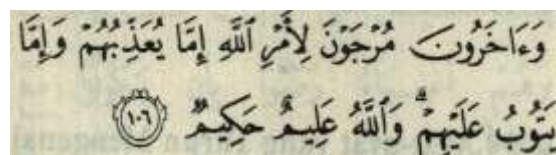 وَءَاخَرُونَ مُرْجَوْنَ لِأَمْرِ ٱللَّهِ إِمَّا يُعَذِّبُهُمْ وَإِمَّا
يَتُوبُ عَلَيْهِمْ ۗ وَٱللَّهُ عَلِيمٌ حَكِيمٌ ١٠٦